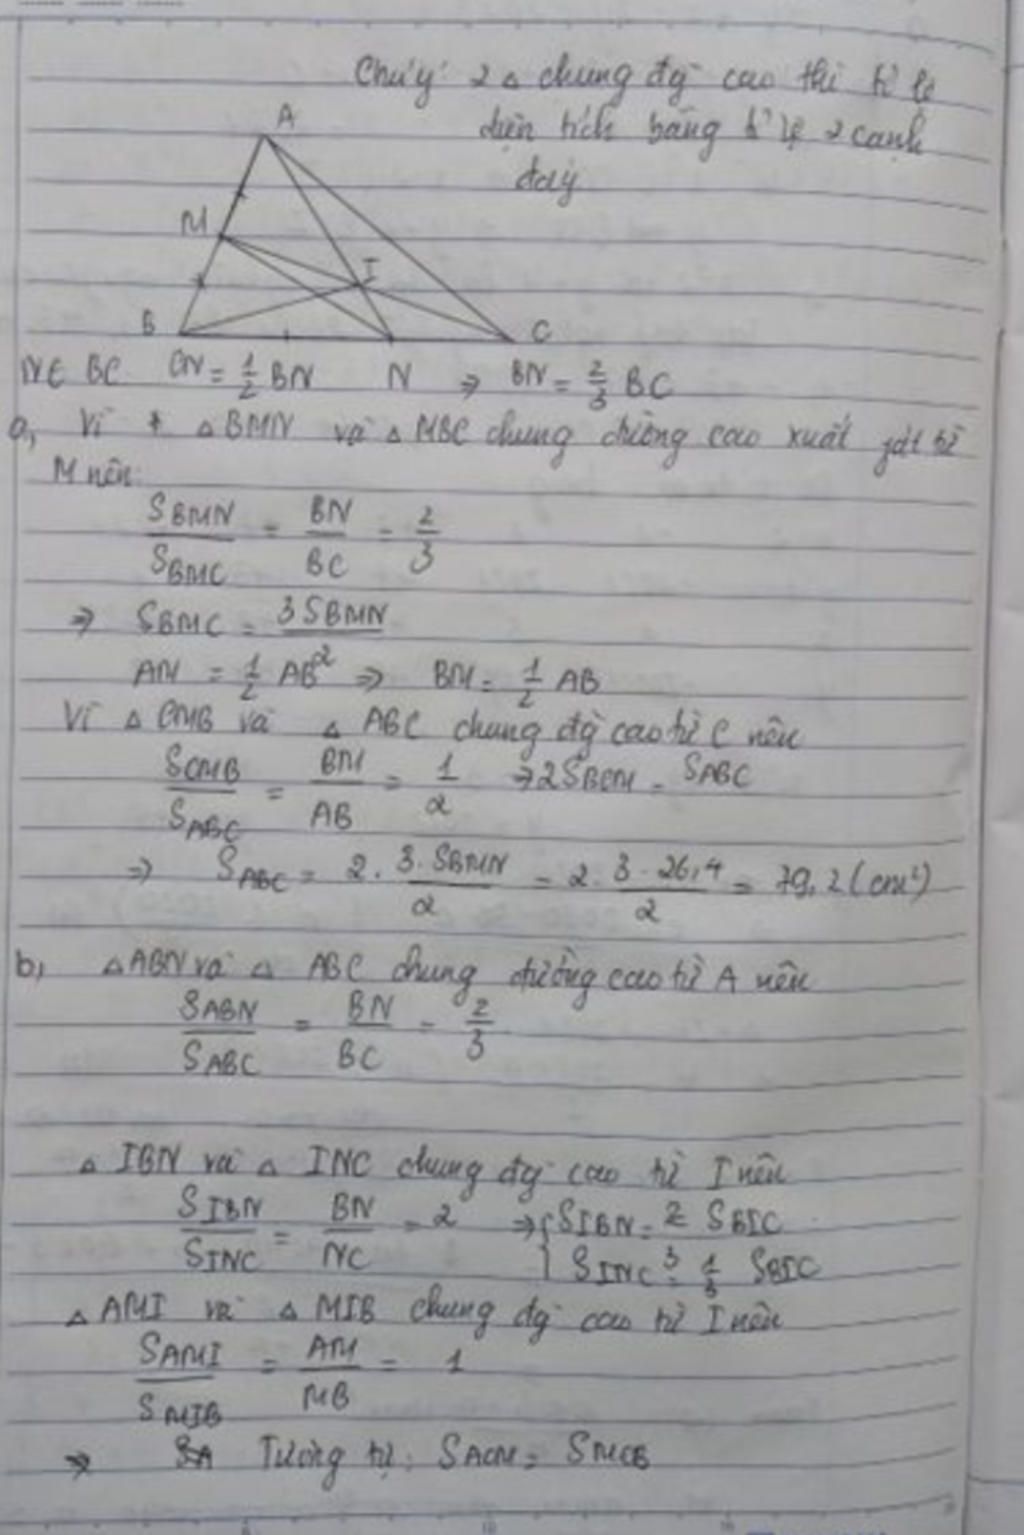 Chú ý: 2 △ chung đg cao thì tỉ lệ
diện tích bằng tỉ lệ 2 cạnh
đáy
A
M
I
B
C
N ∈ BC CN = 1/2 BN N ⇒ BN = 2/3 BC
a, Vì △ BMN và △ MBC chung đường cao xuất phát từ
M nên:
S BMN / S BMC = BN / BC = 2/3
⇒ S BMC = 3 S BMN / 2
AM = 1/2 AB ⇒ BM = 1/2 AB
Vì △ CMB và △ ABC chung đg cao từ C nên
S CMB / S ABC = BM / AB = 1/2 ⇒ 2 S BCM = S ABC
⇒ S ABC = 2 . 3 . S BMN / 2 = 2 . 3 . 26,4 / 2 = 79,2 (cm²)
b, △ ABN và △ ABC chung đường cao từ A nên
S ABN / S ABC = BN / BC = 2/3
△ IBN và △ INC chung đg cao từ I nên
S IBN / S INC = BN / NC = 2 ⇒ { S IBN = 2/3 S BIC
S INC = 1/3 S BIC
△ AMI và △ MIB chung đg cao từ I nên
S AMI / S MIB = AM / MB = 1
⇒ Tương tự: S ACM = S MCB